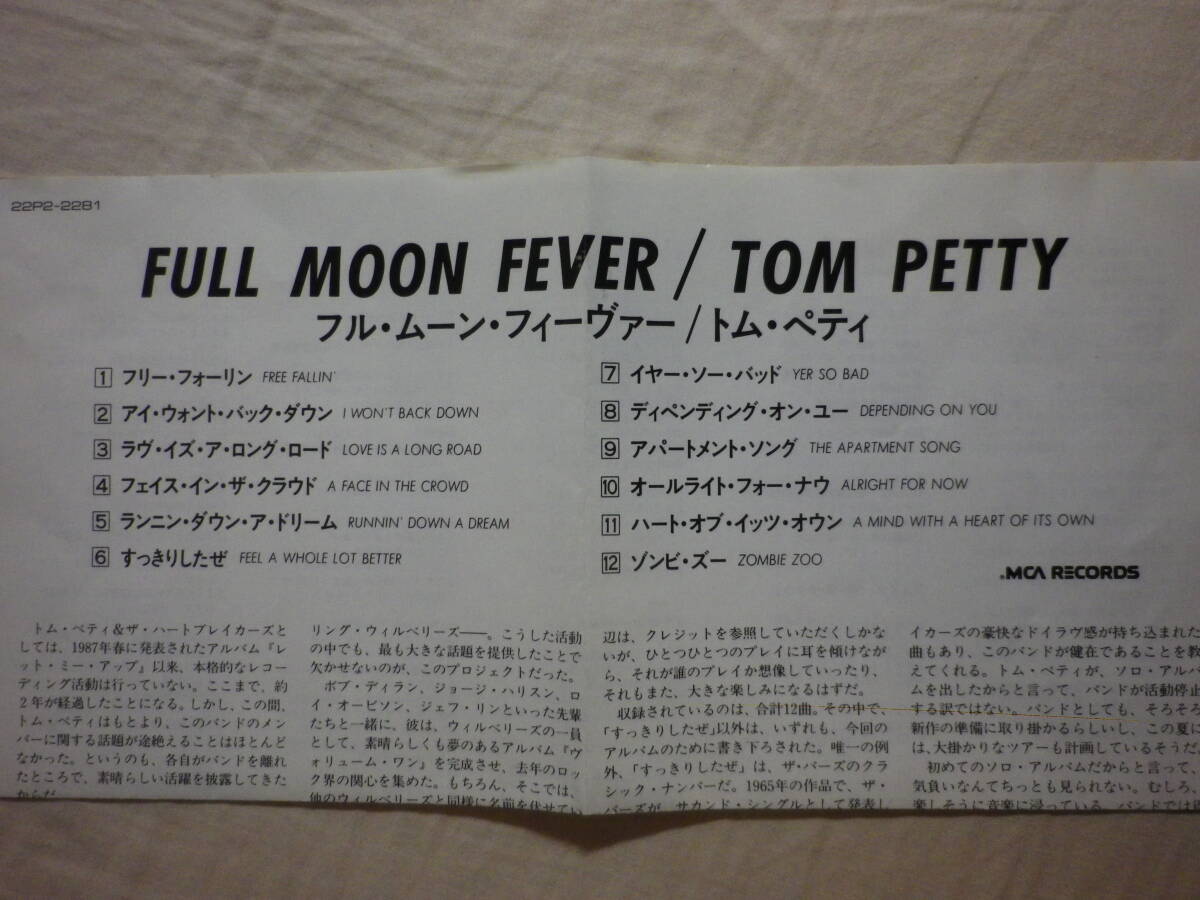 22P2-2281
FULL MOON FEVER / TOM PETTY
フル・ムーン・フィーヴァー/トム・ペティ
1 フリー・フォーリン FREE FALLIN'
2 アイ・ウォント・バック・ダウン I WON'T BACK DOWN
3 ラヴ・イズ・ア・ロング・ロード LOVE IS A LONG ROAD
4 フェイス・イン・ザ・クラウド A FACE IN THE CROWD
5 ランニン・ダウン・ア・ドリーム RUNNIN' DOWN A DREAM
6 すっきりしたぜ FEEL A WHOLE LOT BETTER
7 イヤー・ソー・バッド YER SO BAD
8 ディペンディング・オン・ユー DEPENDING ON YOU
9 アパートメント・ソング THE APARTMENT SONG
10 オールライト・フォー・ナウ ALRIGHT FOR NOW
11 ハート・オブ・イッツ・オウン A MIND WITH A HEART OF ITS OWN
12 ゾンビ・ズー ZOMBIE ZOO
MCA RECORDS
トム・ペティ&ザ・ハートブレイカーズと
しては、1987年春に発表されたアルバム『レ
ット・ミー・アップ』以来、本格的なレコー
ディング活動は行っていない。ここまで、約
2年が経過したことになる。しかし、この間、
トム・ペティはもとより、このバンドのメン
バーに関する話題が途絶えることはほとんど
なかった。というのも、各自がバンドを離れ
たところで、素晴らしい活躍を披露してきた
からだ
リング・ウィルベリーズ――。こうした活動
の中でも、最も大きな話題を提供したことで
欠かせないのが、このプロジェクトだった。
ボブ・ディラン、ジョージ・ハリスン、ロ
イ・オービソン、ジェフ・リンといった先輩
たちと一緒に、彼は、ウィルベリーズの一員
として、素晴らしくも夢のあるアルバム『ヴ
ォリューム・ワン』を完成させ、去年のロッ
ク界の関心を集めた。もちろん、そこでは、
他のウィルベリーズと同様に名前を伏せてい
辺は、クレジットを参照していただくしかな
いが、ひとつひとつのプレイに耳を傾けなが
ら、それが誰のプレイか想像していったり、
それもまた、大きな楽しみになるはずだ。
収録されているのは、合計12曲。その中で、
「すっきりしたぜ」以外は、いずれも、今回の
アルバムのために書き下ろされた。唯一の例
外、「すっきりしたぜ」は、ザ・バーズのクラ
シック・ナンバーだ。1965年の作品で、ザ・
バーズが、サカンド・シングルとして発表し
イカーズの豪快なドイラヴ感が持ち込まれた
曲もあり、このバンドが健在であることを教
えてくれる。トム・ペティが、ソロ・アルバ
ムを出したからと言って、バンドが活動停止
する訳ではない。バンドとしても、そろそろ
新作の準備に取り掛かるらしいし、この夏に
は、大掛かりなツアーも計画しているそうだ。
初めてのソロ・アルバムだからと言って、
気負いなんてちっとも見られない。むしろ、
楽しそうに音楽に浸っている。バンドでは